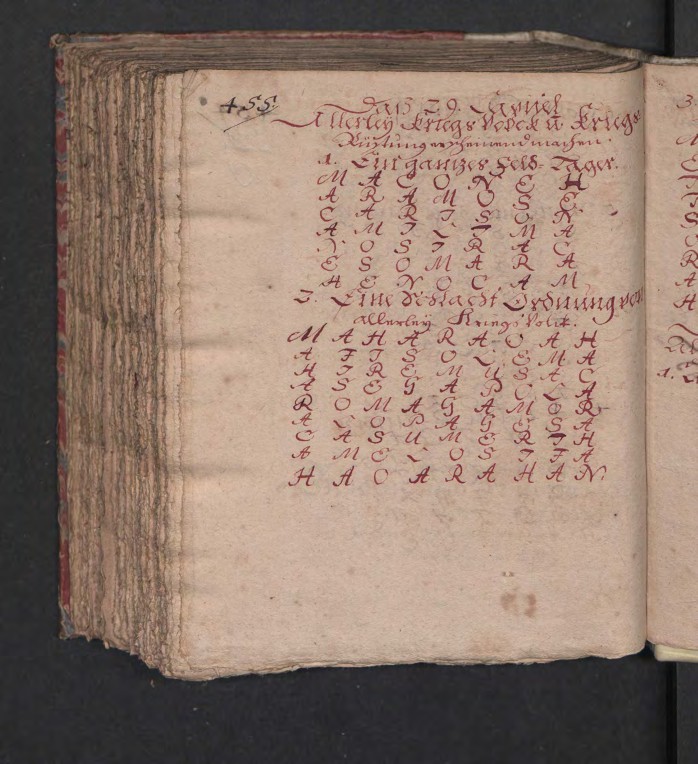 455.
Daß 29. Capitel
Allerley Kriegs Volck u. Kriegs
Rüstung erscheinend machen.
1. Ein gantzes Feld-Lager.
M A C O N E H
A R A M O S E
C A R I S O N
A M I L I M A
N O S I R A C
E S O M A R A
H E N O C A M
2. Eine Schlacht Ordnung von
allerley Kriegs Volck.
M A H A R A O A H
A I I S O L E M A
H I R E M U S A C
A S E G A P C L A
R O M A G A M O R
A L O P A G E S A
C A S U M E R I H
A M E L O S I I A
H A O A R A H A N.